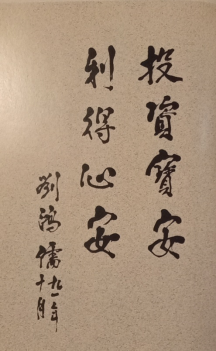 投資寶安
利得心安
劉鴻儒 九一年
十月